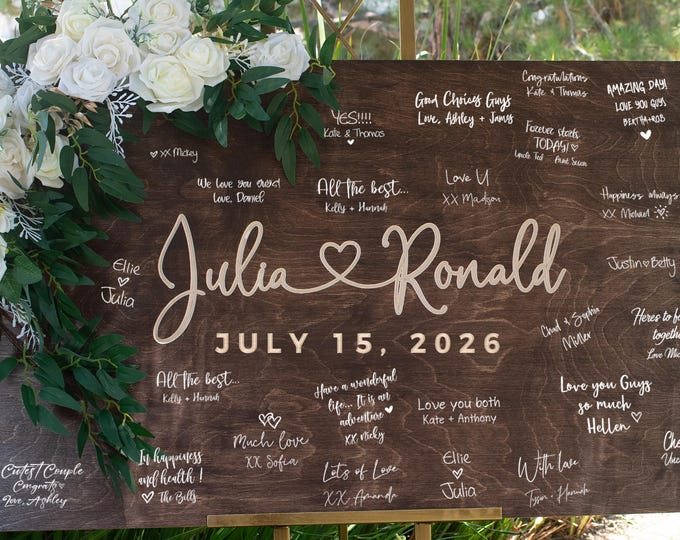 YES!!!!
Kate & Thomas
Good Choices Guys
Love, Ashley + James
Congratulations
Kate & Thomas
AMAZING DAY!
LOVE YOU GUYS
BERTHA+ROB
Forever starts
TODAY!
Uncle Ted Aunt Susan
XX Mickey
We love you guys!
Love, Daniel
All the best...
Kelly + Hannah
Love U
XX Madison
Happiness always
XX Michael
Ellie
Julia
Julia Ronald
JULY 15, 2026
Justin Betty
Chad & Sophia
Miller
Heres to
together
Love
All the best...
Kelly + Hannah
Have a wonderful
life... It is an
adventure
XX Micky
Love you both
Kate + Anthony
Love you Guys
so much
Hellen
Much love
XX Sofia
Cutest Couple
Congrats
Love, Ashley
In happiness
and health!
The Bills
Lots of Love
XX Amanda
Ellie
Julia
With love
Tyson + Hannah